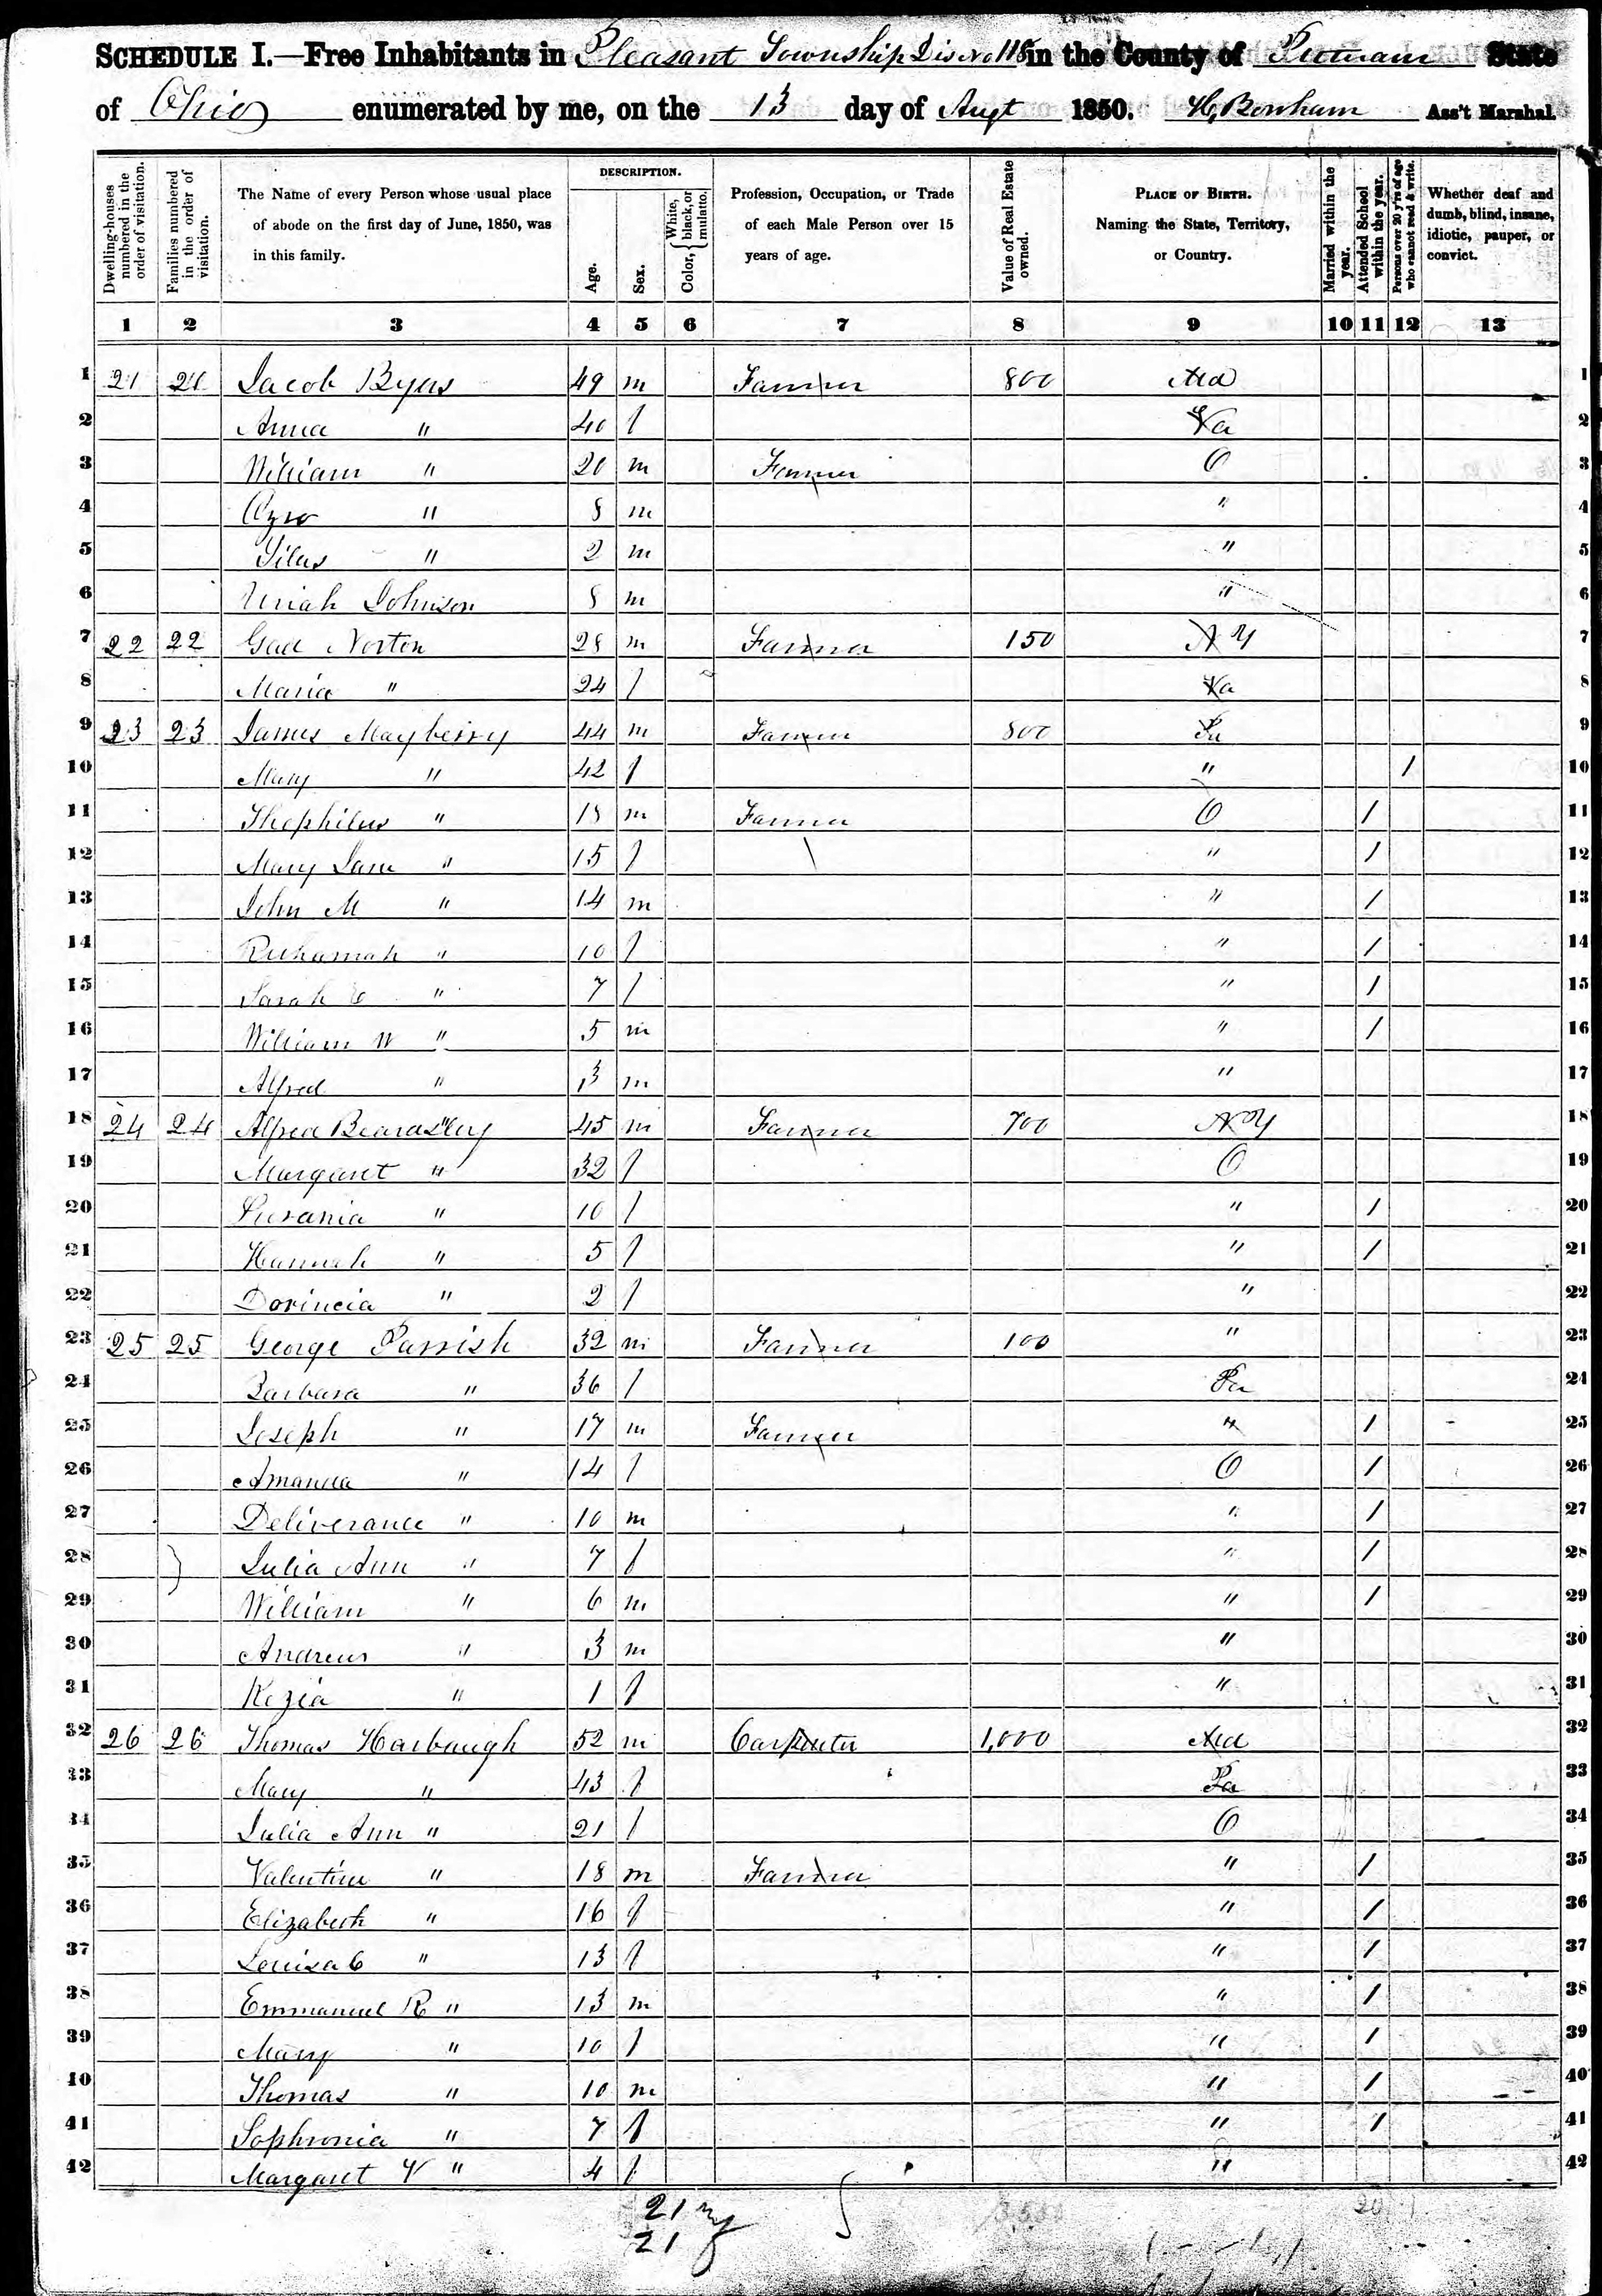 SCHEDULE I.—Free Inhabitants in Pleasant Township Dis No 118 in the County of Putnam State
of Ohio enumerated by me, on the 13 day of Augt 1850. H, Bonham Ass't Marshal.
Dwelling-houses numbered in the order of visitation.
Families numbered in the order of visitation.
The Name of every Person whose usual place of abode on the first day of June, 1850, was in this family.
DESCRIPTION.
Age.
Sex.
Color, { White, black, or mulatto.
Profession, Occupation, or Trade of each Male Person over 15 years of age.
Value of Real Estate owned.
PLACE OF BIRTH. Naming the State, Territory, or Country.
Married within the year.
Attended School within the year.
Persons over 20 y'rs of age who cannot read & write.
Whether deaf and dumb, blind, insane, idiotic, pauper, or convict.
1 2 3 4 5 6 7 8 9 10 11 12 13
1 21 21 Jacob Byers 49 m Farmer 800 Md 1
2 Anna " 40 f Va 2
3 William " 20 m Farmer O 3
4 Ozro " 8 m " 4
5 Silas " 2 m " 5
6 Uriah Johnson 8 m " 6
7 22 22 Gad Norton 28 m Farmer 150 N Y 7
8 Maria " 24 f Va 8
9 23 23 James Mayberry 44 m Farmer 800 Pa 9
10 Mary " 42 f " / 10
11 Thephilus " 18 m Farmer O / 11
12 Mary Jane " 15 f " / 12
13 John M " 14 m " / 13
14 Ruhamah " 10 f " / 14
15 Sarah E " 7 f " / 15
16 William W " 5 m " / 16
17 Alfred " 3 m " 17
18 24 24 Alfred Beardsley 45 m Farmer 700 N Y 18
19 Margaret " 32 f O 19
20 Lurania " 10 f " / 20
21 Hannah " 5 f " / 21
22 Dorincia " 2 f " 22
23 25 25 George Parrish 32 m Farmer 100 " 23
24 Barbara " 36 f Pa 24
25 Joseph " 17 m Farmer " / 25
26 Amanda " 14 f O / 26
27 Deliverance " 10 m " / 27
28 Julia Ann " 7 f " / 28
29 William " 6 m " / 29
30 Andrew " 3 m " 30
31 Kezia " 1 f " 31
32 26 26 Thomas Harbaugh 52 m Carpenter 1,000 Md 32
33 Mary " 43 f Pa 33
34 Julia Ann " 21 f O 34
35 Valentine " 18 m Farmer " / 35
36 Elizabeth " 16 f " / 36
37 Louisa C " 13 f " / 37
38 Emmanuel R " 13 m " / 38
39 Mary " 10 f " / 39
40 Thomas " 10 m " / 40
41 Sophronia " 7 f " / 41
42 Margaret V " 4 f " 42
21 m
21 f